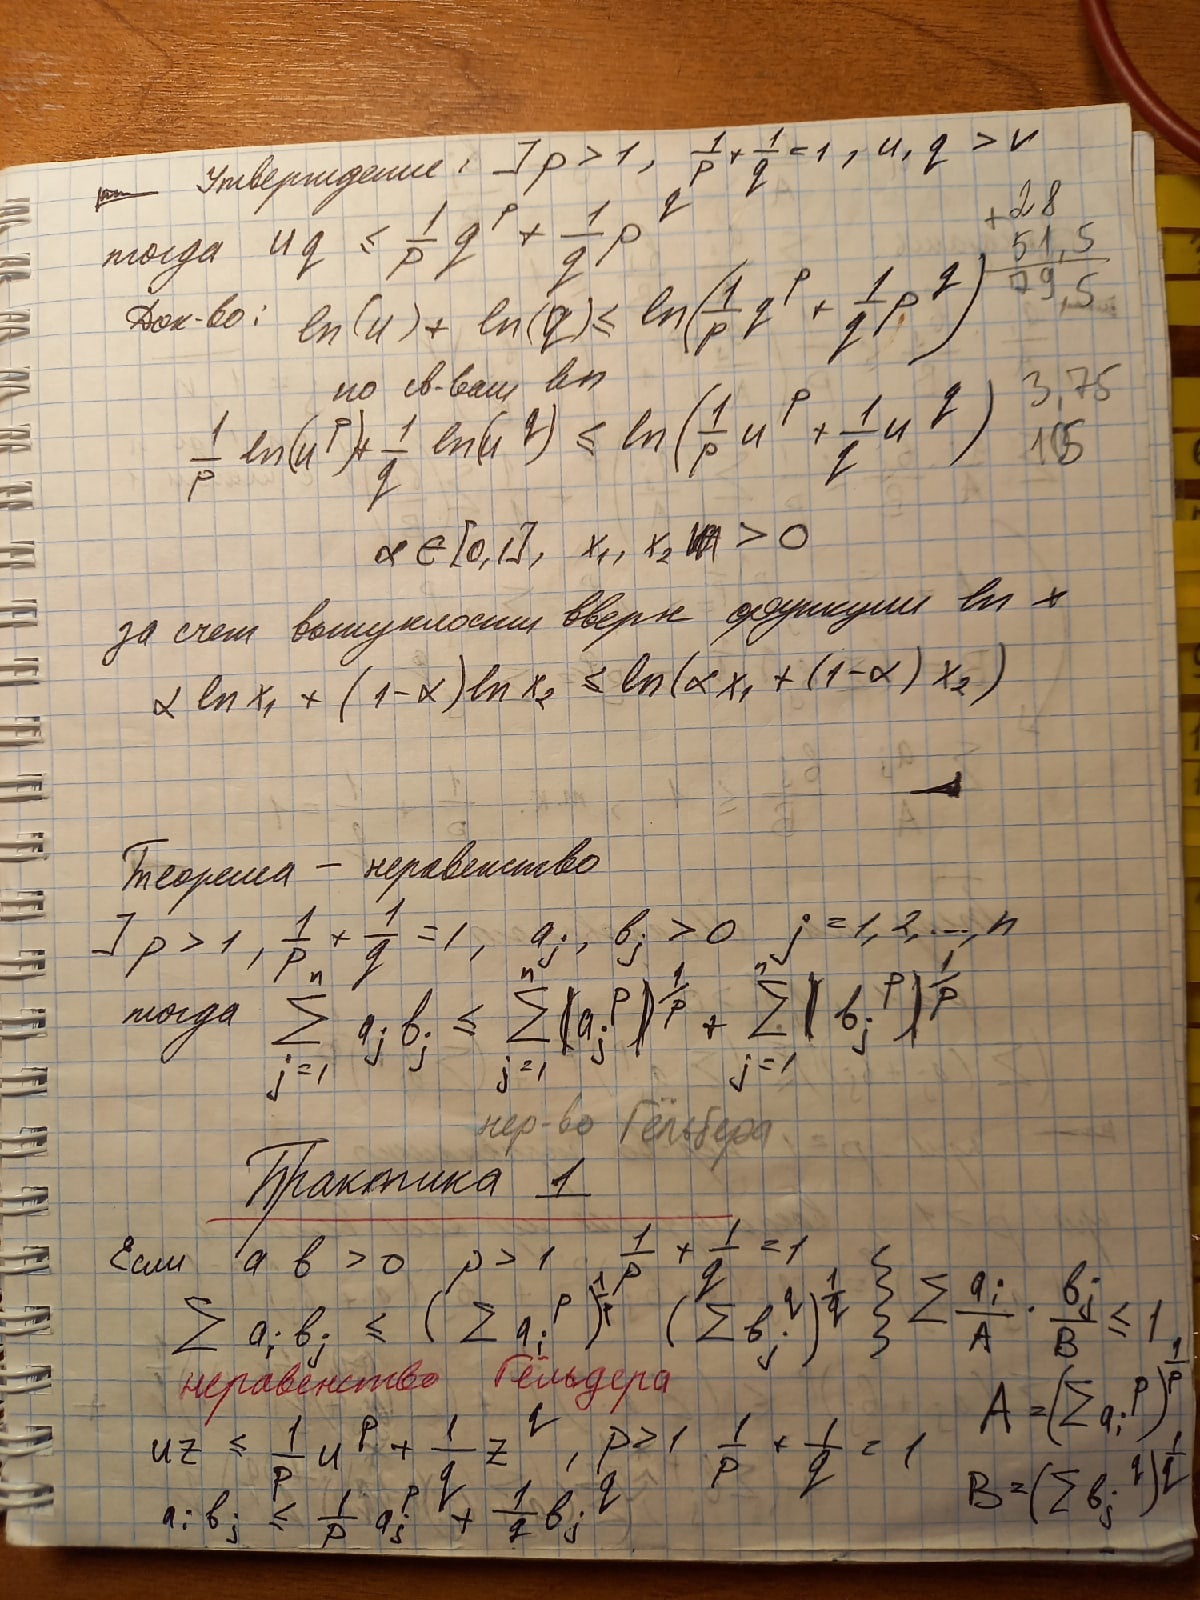 Утверждение: ] p > 1, 1/p + 1/q = 1, u, q > v
тогда uq ≤ 1/p q^p + 1/q p^q
+28
51,5
79,5
Док-во: ln(u) + ln(q) ≤ ln(1/p q^p + 1/q p^q)
по св-вам ln
3,75
1/p ln(u^p) + 1/q ln(u^q) ≤ ln(1/p u^p + 1/q u^q)
α ∈ [0,1], x₁, x₂ > 0
за счет выпуклости вверх функции ln x
α ln x₁ + (1-α) ln x₂ ≤ ln(α x₁ + (1-α) x₂)
Теорема – неравенство
] p > 1, 1/p + 1/q = 1, a_j, b_j > 0 j = 1, 2, ..., n
тогда ∑_{j=1}^n a_j b_j ≤ ∑_{j=1}^n (a_j^p)^{1/p} + ∑_{j=1}^n (b_j^p)^{1/p}
нер-во Гёльбера
Практика 1
Если a b > 0 p > 1 1/p + 1/q = 1
∑ a_i b_j ≤ (∑ a_i^p)^{1/p} (∑ b_j^q)^{1/q} } ∑ a_i/A · b_j/B ≤ 1
неравенство Гёльдера
A = (∑ a_i^p)^{1/p}
uz ≤ 1/p u^p + 1/q z^q, p > 1 1/p + 1/q = 1
B = (∑ b_j^q)^{1/q}
a_i b_j ≤ 1/p a_j^p + 1/q b_j^q